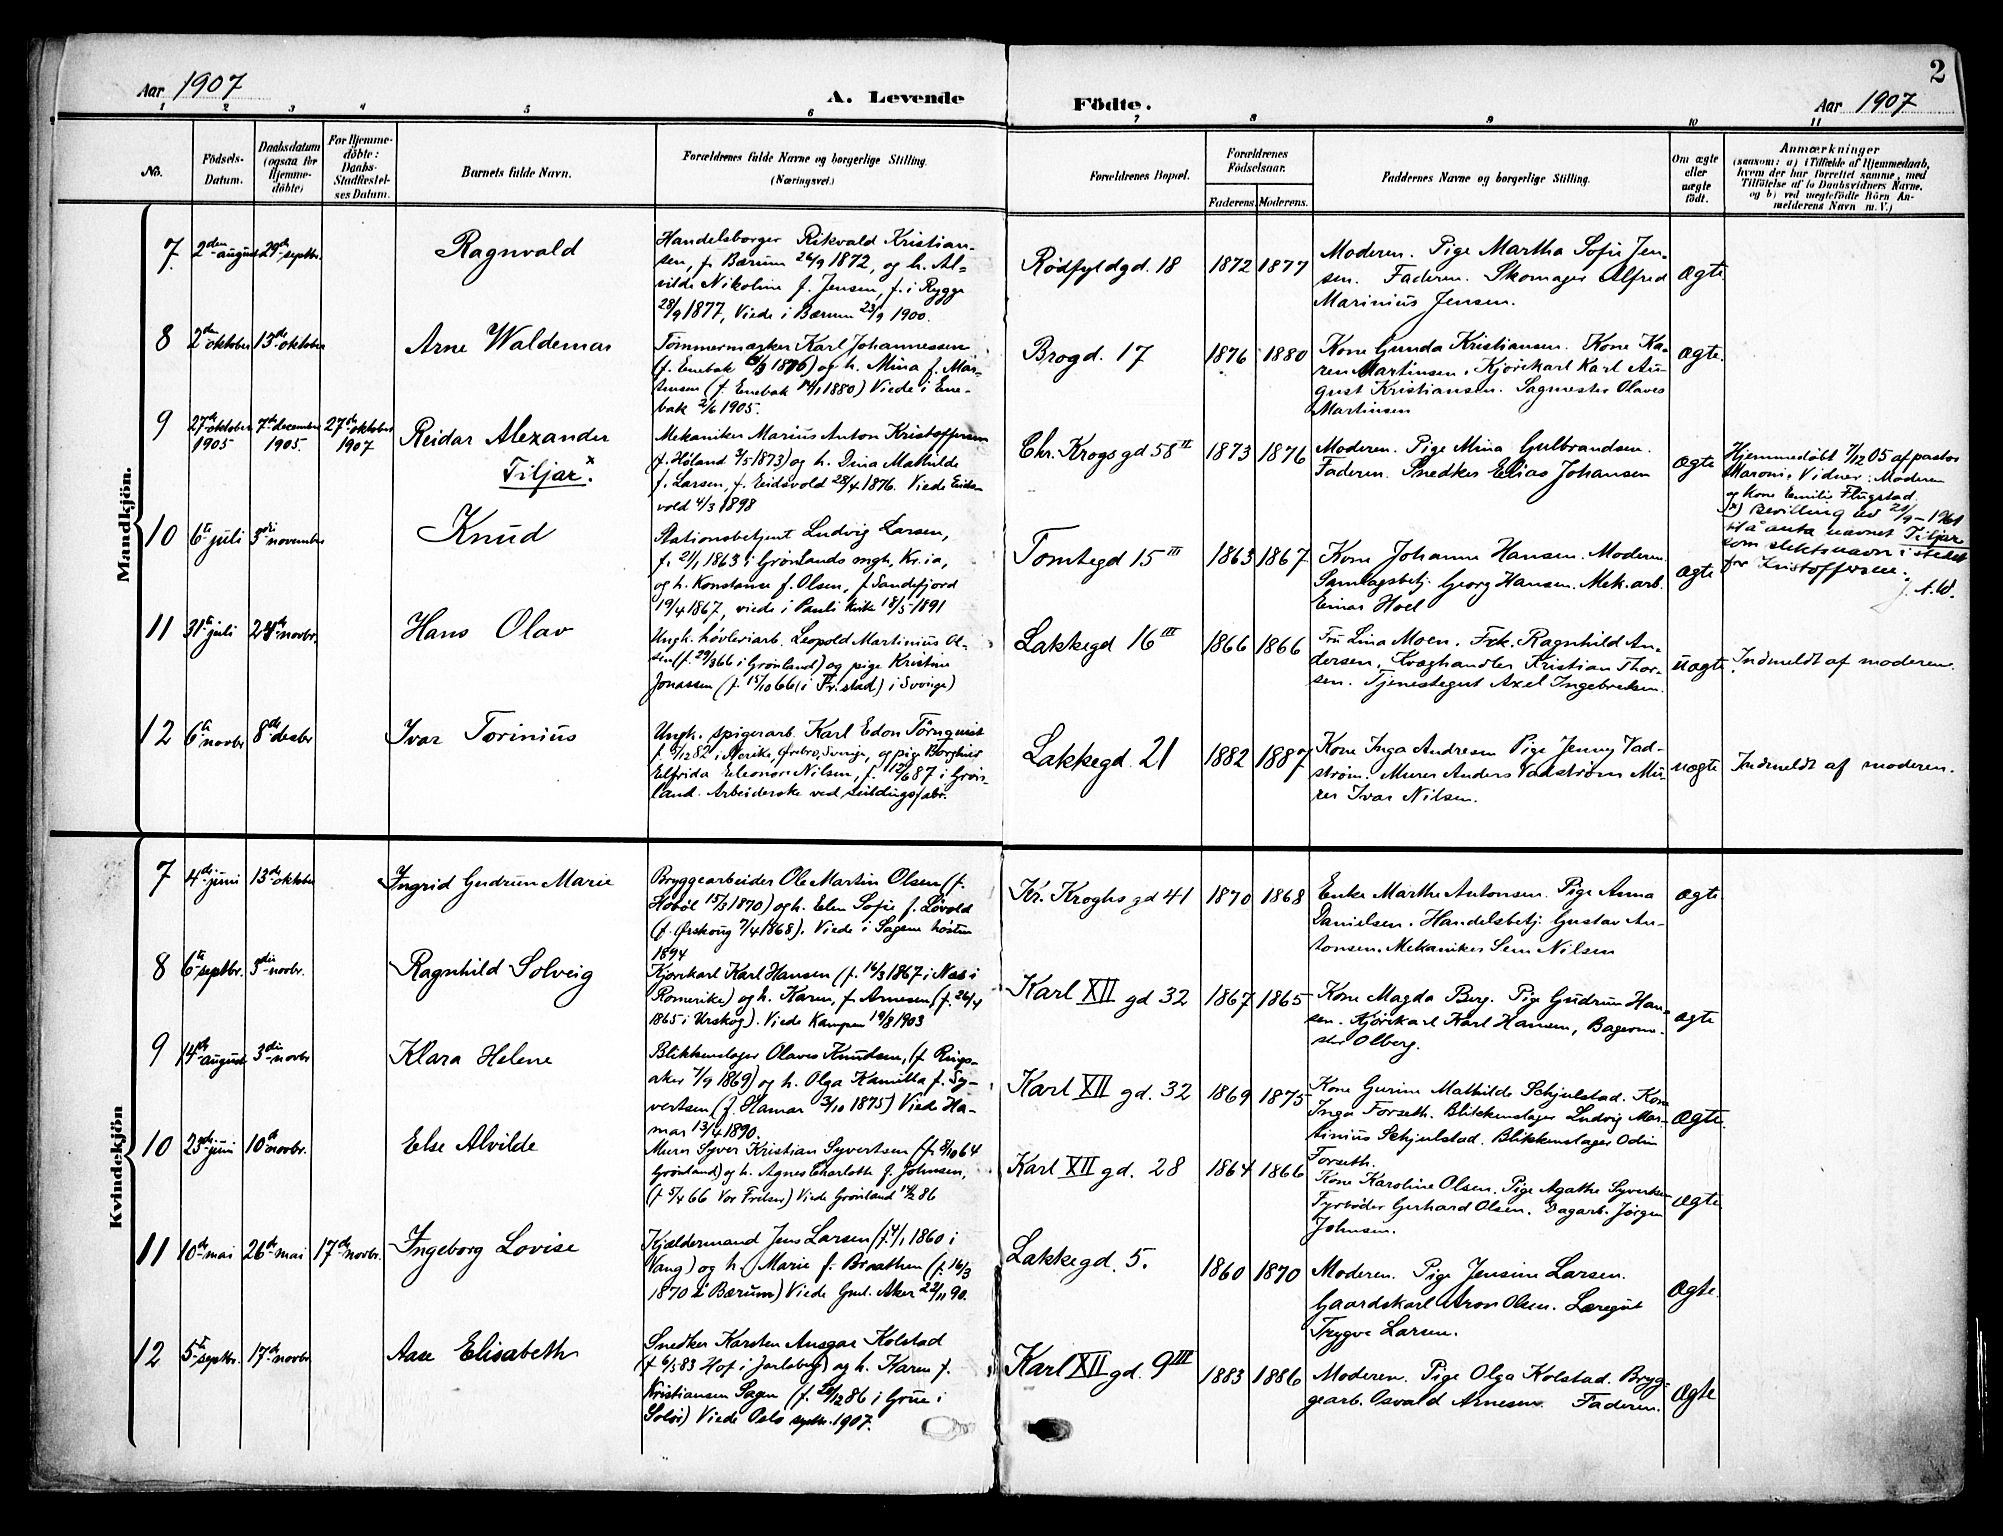 2
Aar 1907
A. Levende
Födte.
Aar 1907
1 2 3 4 5 6 7 8 9 10 11
No.
Födsels-
Datum.
Daabsdatum
(ogsaa för
Hjemme-
döbte)
For Hjemme-
döbte:
Daabs-
Stadfæstel-
ses Datum.
Barnets fulde Navn.
Forældrenes fulde Navne og borgerlige Stilling.
(Næringsvei.)
Forældrenes Bopæl.
Forældrenes
Födselsaar.
Faderens. Moderens.
Faddernes Navne og borgerlige Stilling.
Om ægte
eller
uægte
födt.
Anmærkninger
(saasom: a) i Tilfælde af Hjemmedaab,
hvem der har forrettet samme, med
Tilföielse af to Daabsvidners Navne.
og b) ved uægtefödte Börn An-
melderens Navn m. V.)
Mandkjön.
7
2den august
29de septbr.
Ragnvald
Handelsborger Rikvald Kristian-
sen, f. Bærum 26/9 1872, og h. Al-
vilde Nikoline f. Jensen, f. i Rygge
28/9 1877, Viede i Bærum 23/9 1900.
Rödfyldgd. 18
1872 1877
Moderen. Pige Martha Sofie Jen-
sen. Faderen. Skomager Alfred
Marinius Jensen.
Ægte
8
2den oktober
13de oktober
Arne Waldemar
Tömmermærker Karl Johannessen
(f. Enebak 1876) og h. Mina f. Mar-
tinsen (f. Enebak 14/1 1880) Viede i Ene-
bak 2/6 1905.
Brogd. 17
1876 1880
Kone Gunda Kristiansen. Kone Ka-
ren Martinsen. Kjörekarl Karl Au-
gust Kristiansen. Sagmester Olaves
Martinsen
Ægte.
9
27de oktober
1905
7de december
1905.
27de oktober
1907
Reidar Alexander
Tiljar x.
Mekaniker Marius Anton Kristoffersen
(f. Höland 3/5 1873) og h. Dina Mathilde
f. Larsen, f. Eidsvold 28/4 1876. Viede Eids-
vold 4/3 1898
Chr. Krogs gd 58 II
1873 1876
Moderen. Pige Mina Gulbrandsen.
Faderen. Snedker Elias Johansen
Ægte
Hjemmedöbt 7/12 05 af pastor
Maroni, Vidner: Moderen
og kone Emilie Flugstad.
x) Bevilling av 28/9-1961
til å anta navnet Tiljar
som slektsnavn i stedet
for Kristoffersen.
10
6te juli
3die november
Knud
Stationsbetjent Ludvig Larsen,
f. 21/1 1863 i Grönlands mgh, Kr.ia,
og h. Konstanse f. Olsen, f. Sandefjord
19/4 1867, viede i Pauli kirke 18/5 1891
Tomtegd 15 III
1863 1867
Kone Johanne Hansen. Moderen.
Samlagsbetj. Georg Hansen. Mek. arb.
Einar Hoel
Ægte
11
31te juli
24de novbr.
Hans Olav
Ungk. hövleriarb. Leopold Martinius Ol-
sen (f. 29/3 66 i Grönland) og pige Kristine
Jonassen (f. 15/10 66 i Fr.stad) i Sverige)
Lakkegd 16 III
1866 1866
Fru Lina Moen. Frk. Ragnhild An-
dersen. Kvæghandler Kristian Thor-
sen. Tjenestegut Axel Ingebretsen.
uægte
Indmeldt af moderen.
12
6te novbr
8de decbr
Ivar Torinius
Ungk. spigerarb. Karl Edon Törnquist
f. 6/12 82 i Nerike, Örebro, Sverige, og pige Borghild
Elfrida Eleonora Nilsen, f. 12/6 87 i Grön-
land. Arbeiderske ved seildugsfabr.
Lakkegd. 21
1882 1887
Kone Inga Andresen Pige Jenny Vad-
ström. Murer Anders Vadström Mu-
rer Ivar Nilsen.
uægte
Indmeldt af moderen.
Kvindekjön
7
4de juni
13de oktober
Ingrid Gudrun Marie
Bryggearbeider Ole Martin Olsen (f.
Haböl 15/3 1870) og h. Elen Sofie f. Lövold
(f. Ørskoug 7/4 1868). Viede i Sagene hösten
1894
Kr. Kroghs gd 41
1870 1868
Enke Marthe Antonsen. Pige Anna
Danielsen. Handelsbetj. Gustav An-
tonsen. Mekaniker Sem Nilsen
Ægte
8
6te septbr.
3die novbr.
Ragnhild Solveig
Kjörekarl Karl Hansen (f. 14/3 1867 i Næs i
Romerike) og h. Karen, f. Arnesen (f. 26/4
1865 i Urskog). Viede Kampen 19/8 1903
Karl XII gd 32
1867 1865
Kone Magda Berg. Pige Gudrun Han-
sen. Kjörekarl Karl Hansen, Bagerme-
ster Olberg.
Ægte
9
14de august
3die novbr
Klara Helene
Blikkenslager Olaves Knudsen, (f. Rings-
aker 7/9 1869) og h. Olga Kamilla f. Sy-
vertsen (f. Hamar 3/10 1875) Viede Ha-
mar 13/4 1890.
Karl XII gd. 32
1869 1875
Kone Gurine Mathilde Schjulstad. Kone
Inga Forseth. Blikkenslager Ludvig Mar-
tinius Schjulstad. Blikkenslager Odin
Forseth.
Ægte
10
23de juni
10de novbr.
Else Alvilde
Murer Syver Kristian Syvertsen (f. 8/10 64
Grönland) og h. Agnes Charloth f. Johnsen,
(f. 5/4 66 Vor Frelser) Viede Grönland 14/2 86
Karl XII gd. 28
1864 1866
Kone Karoline Olsen. Pige Agathe Syvertsen
Fyrböder Gerhard Olsen. Dagarb. Jörgen
Johnsen.
Ægte
11
10de mai
26de mai
17de novbr.
Ingeborg Lovise
Kjældermand Jens Larsen (f. 4/1 1860 i
Vang) og h. Marie f. Braathen (f. 16/3
1870 i Bærum) Viede Gml. Aker 22/11 90.
Lakkegd. 5.
1860 1870
Moderen. Pige Jensine Larsen.
Gaardskarl Aron Olsen. Læregut
Trygve Larsen.
Ægte.
12
5te septbr.
17de novbr
Aase Elisabeth
Snedker Karsten Ansgar Kolstad
(f. 6/5 83 Hof i Jarlsberg) og h. Karen f.
Kristiansen Sagen (f. 29/12 86 i Grue i
Solör) Viede Oslo septbr. 1907.
Karl XII gd. 9 III
1883 1886
Moderen. Pige Olga Kolstad. Bryg-
gearb. Osvald Arnesen. Faderen.
Ægte